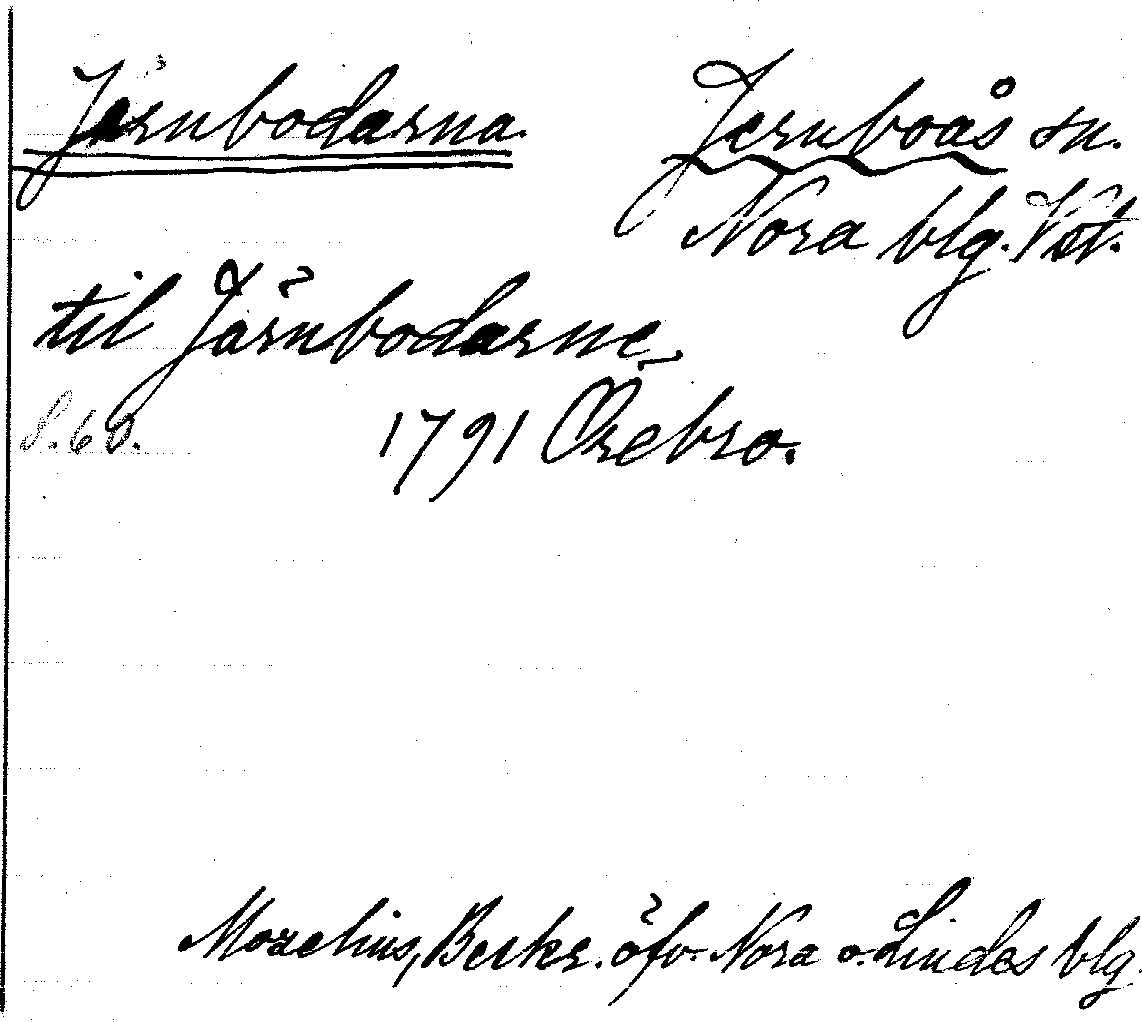 Järnbodarna. Jernboås sn.
Nora blg. Vst.
til Järnbodarne
S. 60. 1791 Örebro.
Morelius, Beskr. öfv. Nora o. Lindes blg.